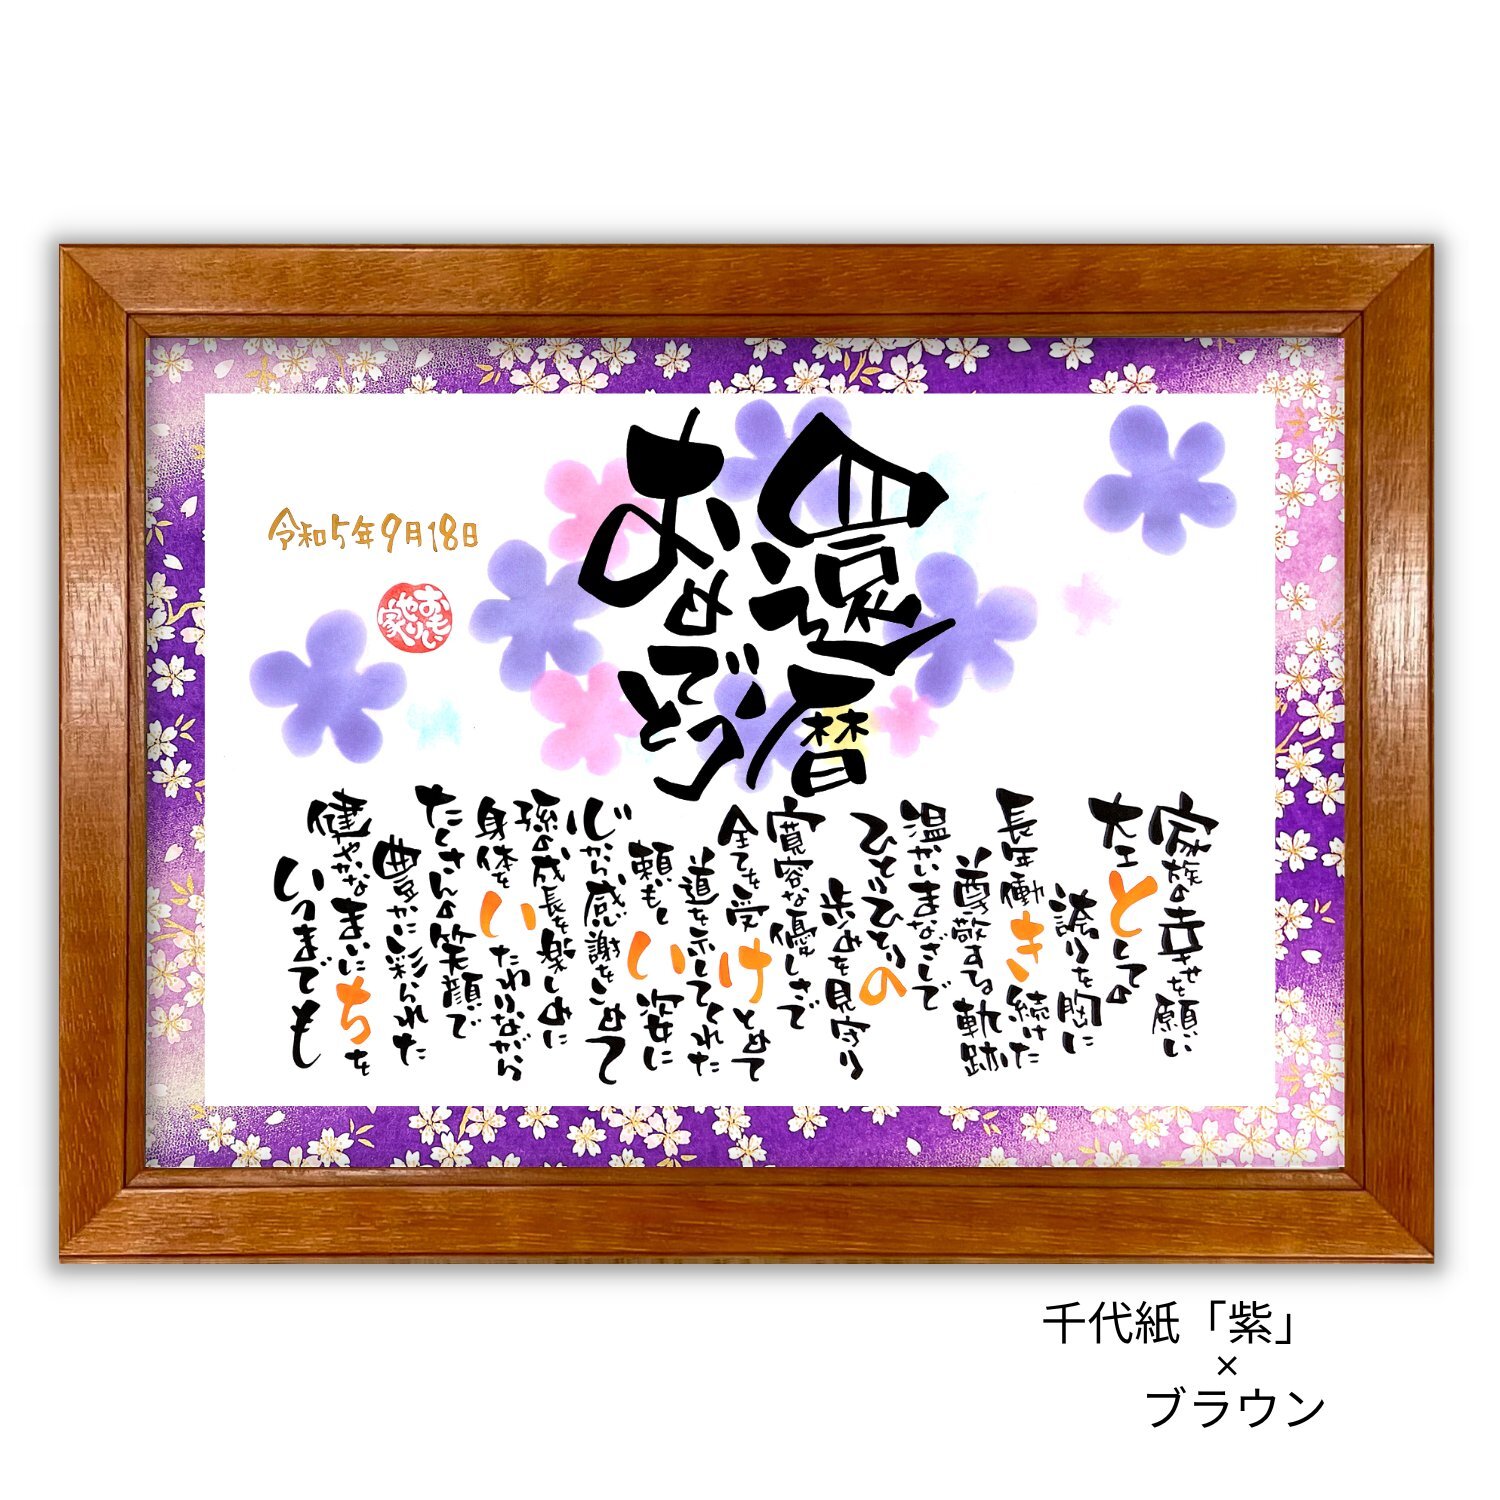 還暦
おめでとう
令和5年9月18日
おもいやりい家
家族の幸せを願い
大工としての
誇りを胸に
長年働き続けた
尊敬する軌跡
温かいまなざしで
ひとりひとりの
歩みを見守り
寛容な優しさで
全てを受けとめて
道を示してくれた
頼もしい姿に
心から感謝をこめて
孫の成長を楽しみに
身体をいたわりながら
たくさんの笑顔で
豊かに彩られた
健やかなまいにちを
いつまでも
千代紙「紫」
×
ブラウン